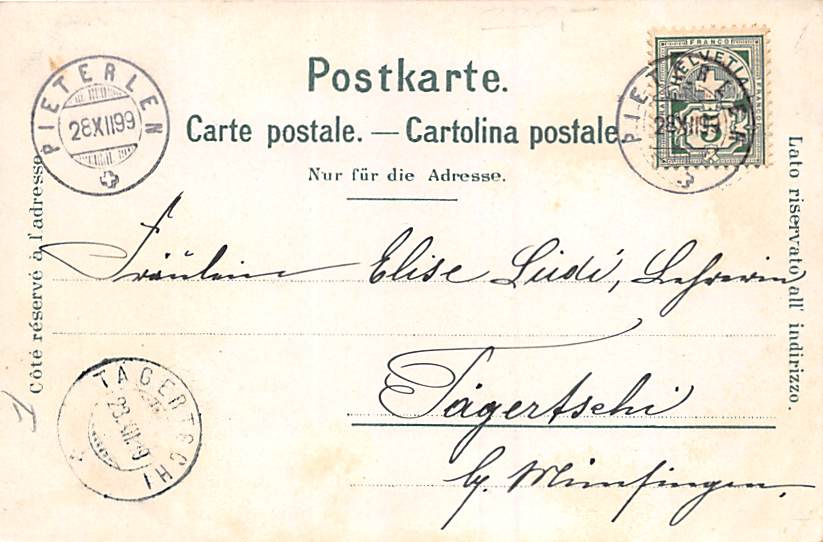 Postkarte.
Carte postale. — Cartolina postale
Nur für die Adresse.
PIETERLEN
28 XII 99
PIETERLEN
28 XII 99
FRANCO
HELVETIA
FRANCO
5
Côté réservé à l'adresse
Lato riservato all' indirizzo.
Fräulein Elise Lüdi, Lehrerin
Tägertschi
by. Münsingen.
TÄGERTSCHI